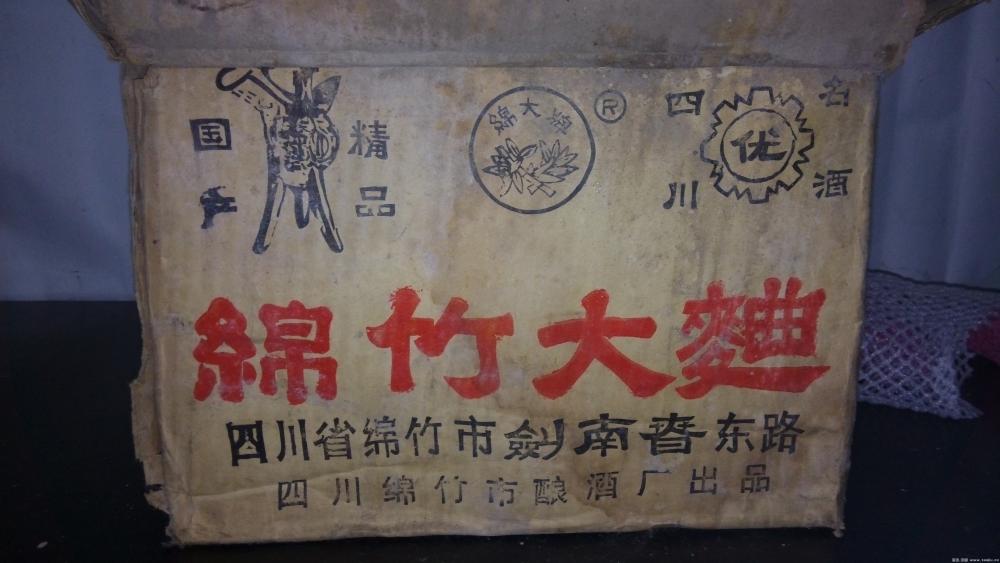 国产
精品
綿大牌
®
四川
优
名酒
綿竹大麯
四川省绵竹市劍南春东路
四川绵竹市酿酒厂出品